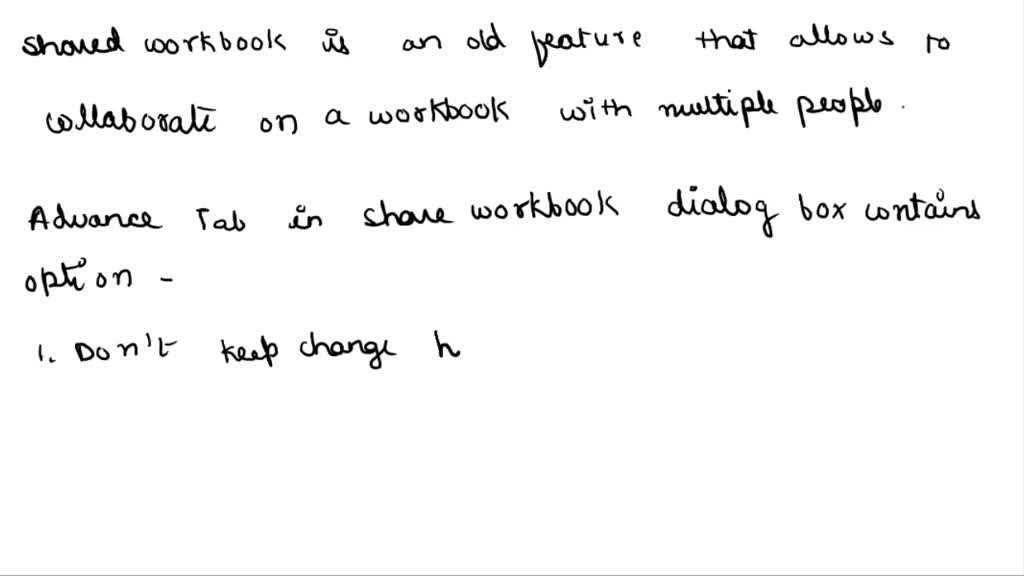 shared workbook is an old feature that allows to
collaborate on a workbook with multiple people.
Advance Tab in share workbook dialog box contains
option -
1. Don't keep change h